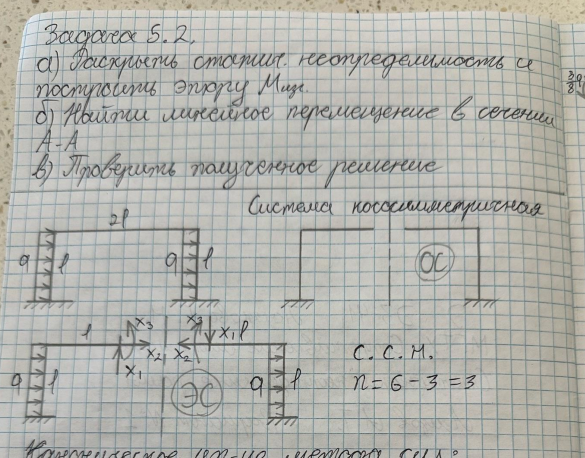 Задача 5.2.
а) Раскрыть статич. неопределимость и
построить эпюру Mиз.
б) Найти линейное перемещение в сечении
А-А
в) Проверить полученное решение
Система кососимметричная
2l
q l q l
ОС
l x3 x3 x1 l
x2 x2
x1
q l ЭС q l
С.С.Н.
n = 6 - 3 = 3
Каноническое ур-ие метода сил:
3
8